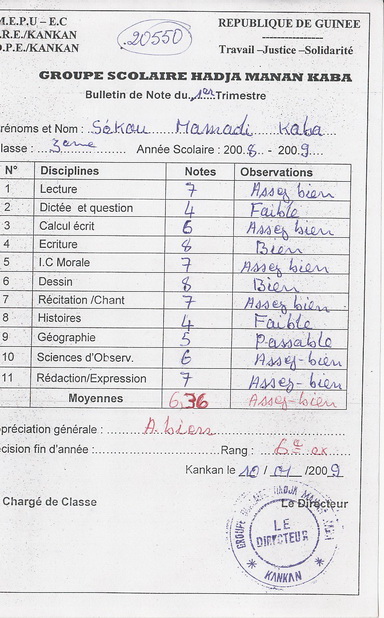 M.E.P.U – E.C
REPUBLIQUE DE GUINEE
.R.E./KANKAN
20550
O.P.E./KANKAN
Travail –Justice –Solidarité
GROUPE SCOLAIRE HADJA MANAN KABA
Bulletin de Note du 1er Trimestre
rénoms et Nom : Sékou Mamadi Kaba
lasse : 3eme Année Scolaire : 2008 - 2009
N° Disciplines Notes Observations
1 Lecture 7 Assez bien
2 Dictée et question 4 Faible
3 Calcul écrit 6 Assez bien
4 Ecriture 8 Bien
5 I.C Morale 7 Assez bien
6 Dessin 8 Bien
7 Récitation /Chant 7 Assez bien
8 Histoires 4 Faible
9 Géographie 5 Passable
10 Sciences d'Observ. 6 Assez-bien
11 Rédaction/Expression 7 Assez-bien
Moyennes 6,36 Assez-bien
préciation générale : A. bien
cision fin d'année : Rang : 6e ex
Kankan le 10/01/2009
Chargé de Classe Le Directeur
GROUPE SCOLAIRE HADJA MANAN KABA
LE
DIRECTEUR
* KANKAN *